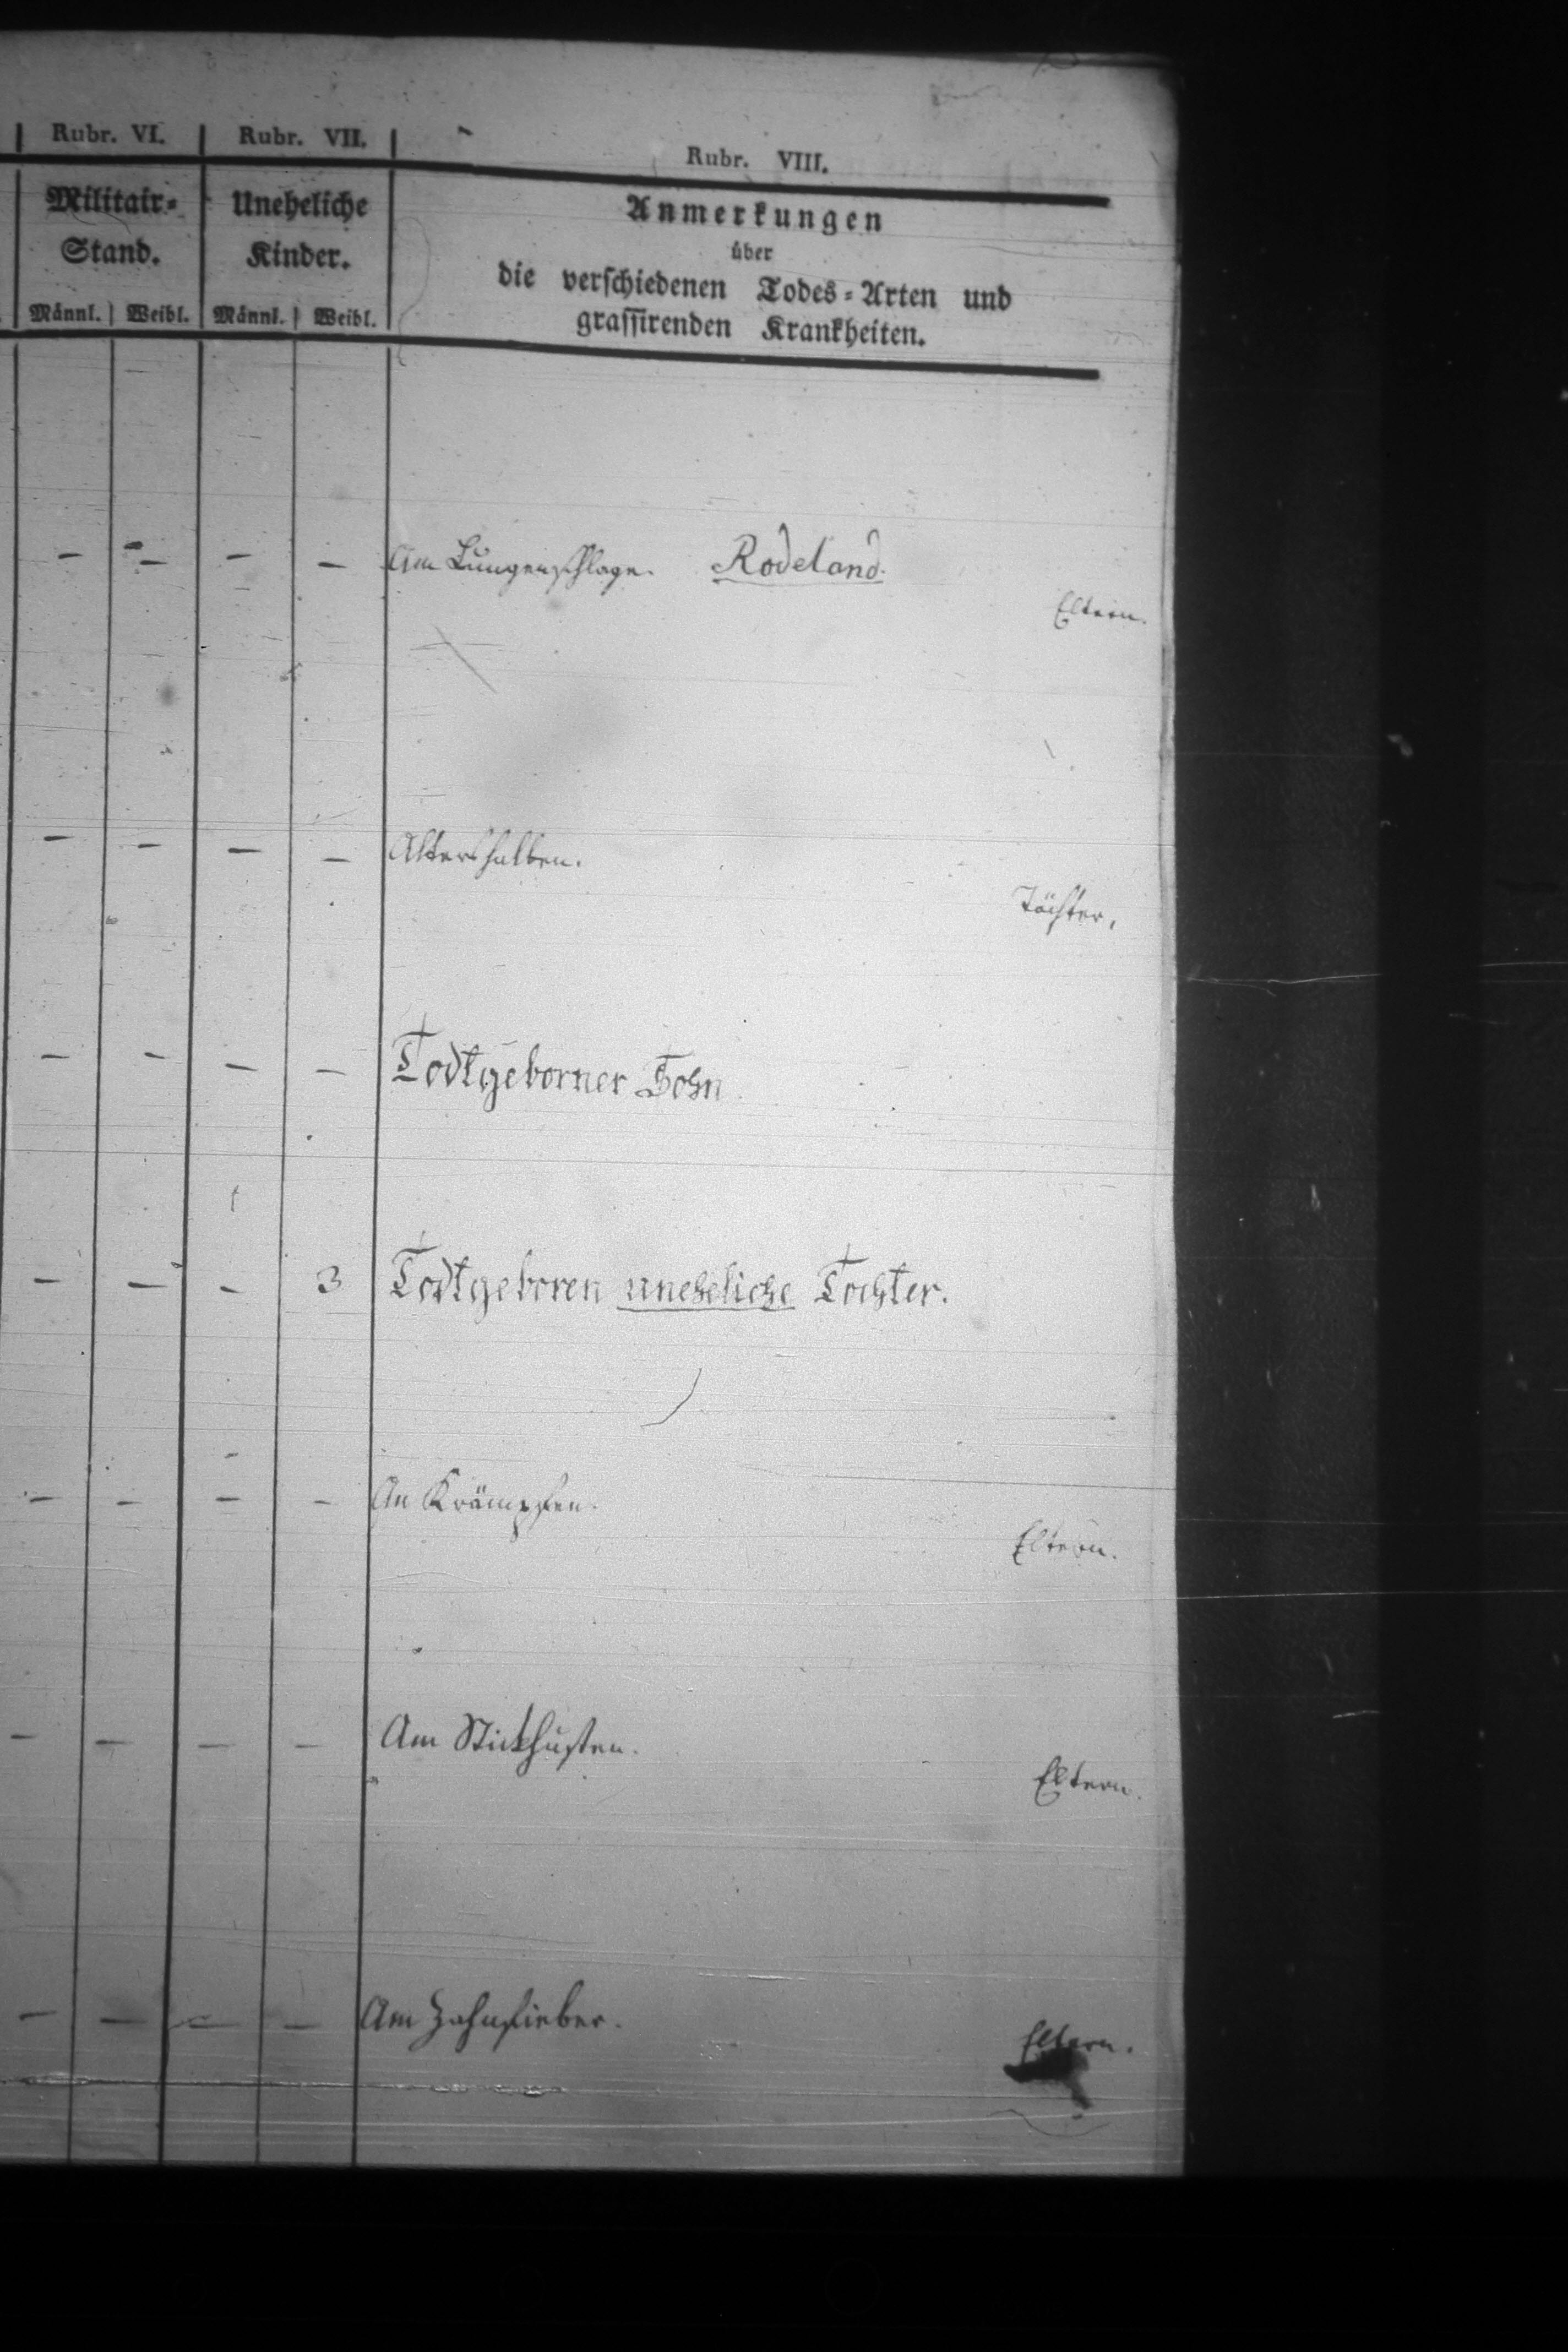 Rubr. VI. Rubr. VII. Rubr. VIII.
Militair= Uneheliche Anmerkungen
Stand. Kinder. über
die verschiedenen Todes=Arten und
Männl. Weibl. Männl. Weibl. grassirenden Krankheiten.
— — — — Am Lungenschlage. Rodeland.
Eltern.
— — — — Altershalben.
Töchter.
— — — — Todtgeborner Sohn
— — — 3 Todtgeboren uneheliche Tochter.
— — — — An Krämpfen.
Eltern.
— — — — Am Stickhusten.
Eltern.
— — — — Am Zahnfieber.
Eltern.